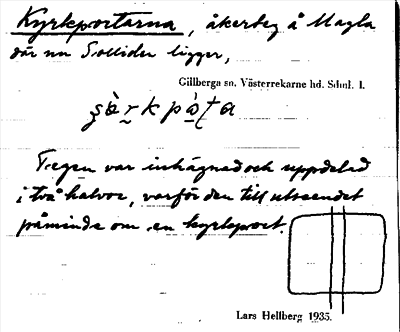 Kyrkportarna, åkerteg å Nagla
där nu Sollider ligger,
Gillberga sn. Västerrekarne hd. Sdml. l.
Tegen var inhägnad och uppdelad
i två halvor, varför den till utseendet
påminde om en kyrkport.
Lars Hellberg 1935.